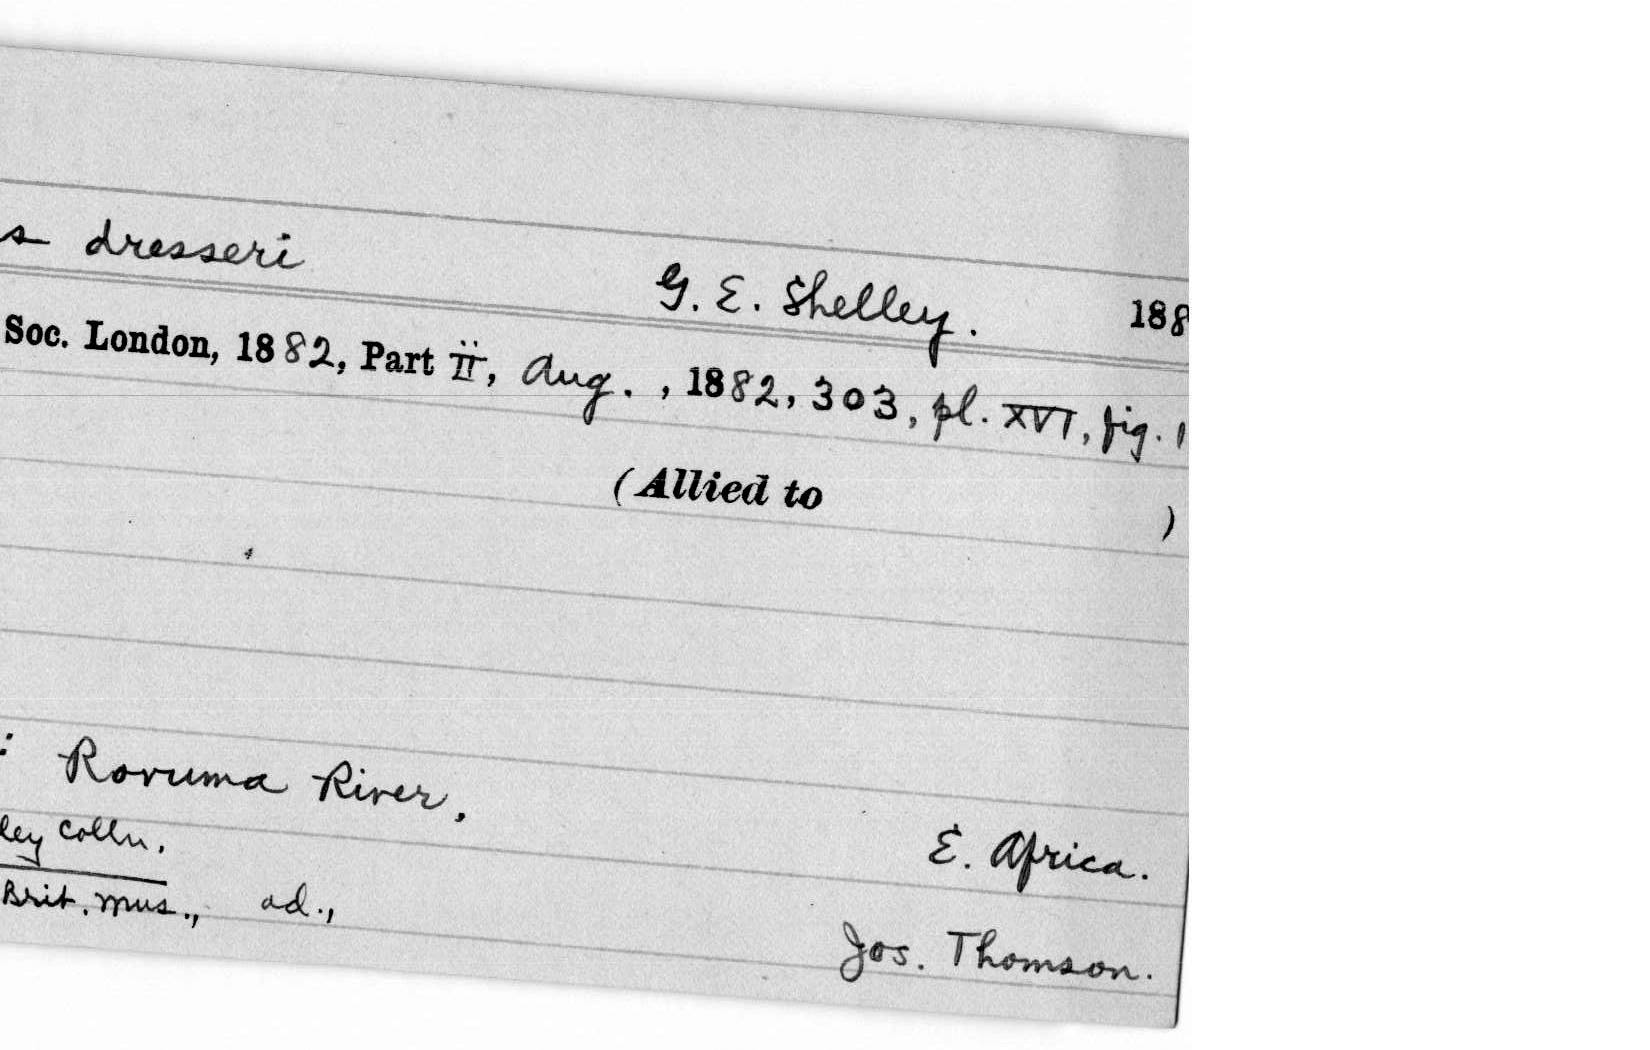 s dresseri G. E. Shelley. 188
Soc. London, 1882, Part ii, Aug. , 1882, 303, pl. XVI, fig. 1
(Allied to )
: Rovuma River,
E. Africa.
ley Colln.
Brit. Mus., ad.,
Jos. Thomson.